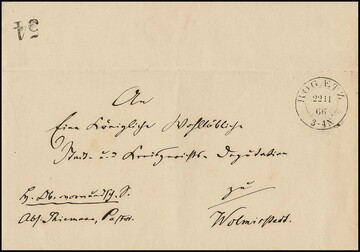 54
ROGÆTZ
22 11
66
3-4N.
An
Eine Königliche Wohllöbliche
Stadt- und Kreisgerichts-Deputation
zu
Wolmirstedt.
H. Obervormundsch. S.
Abs. Thiemann, Pastor.